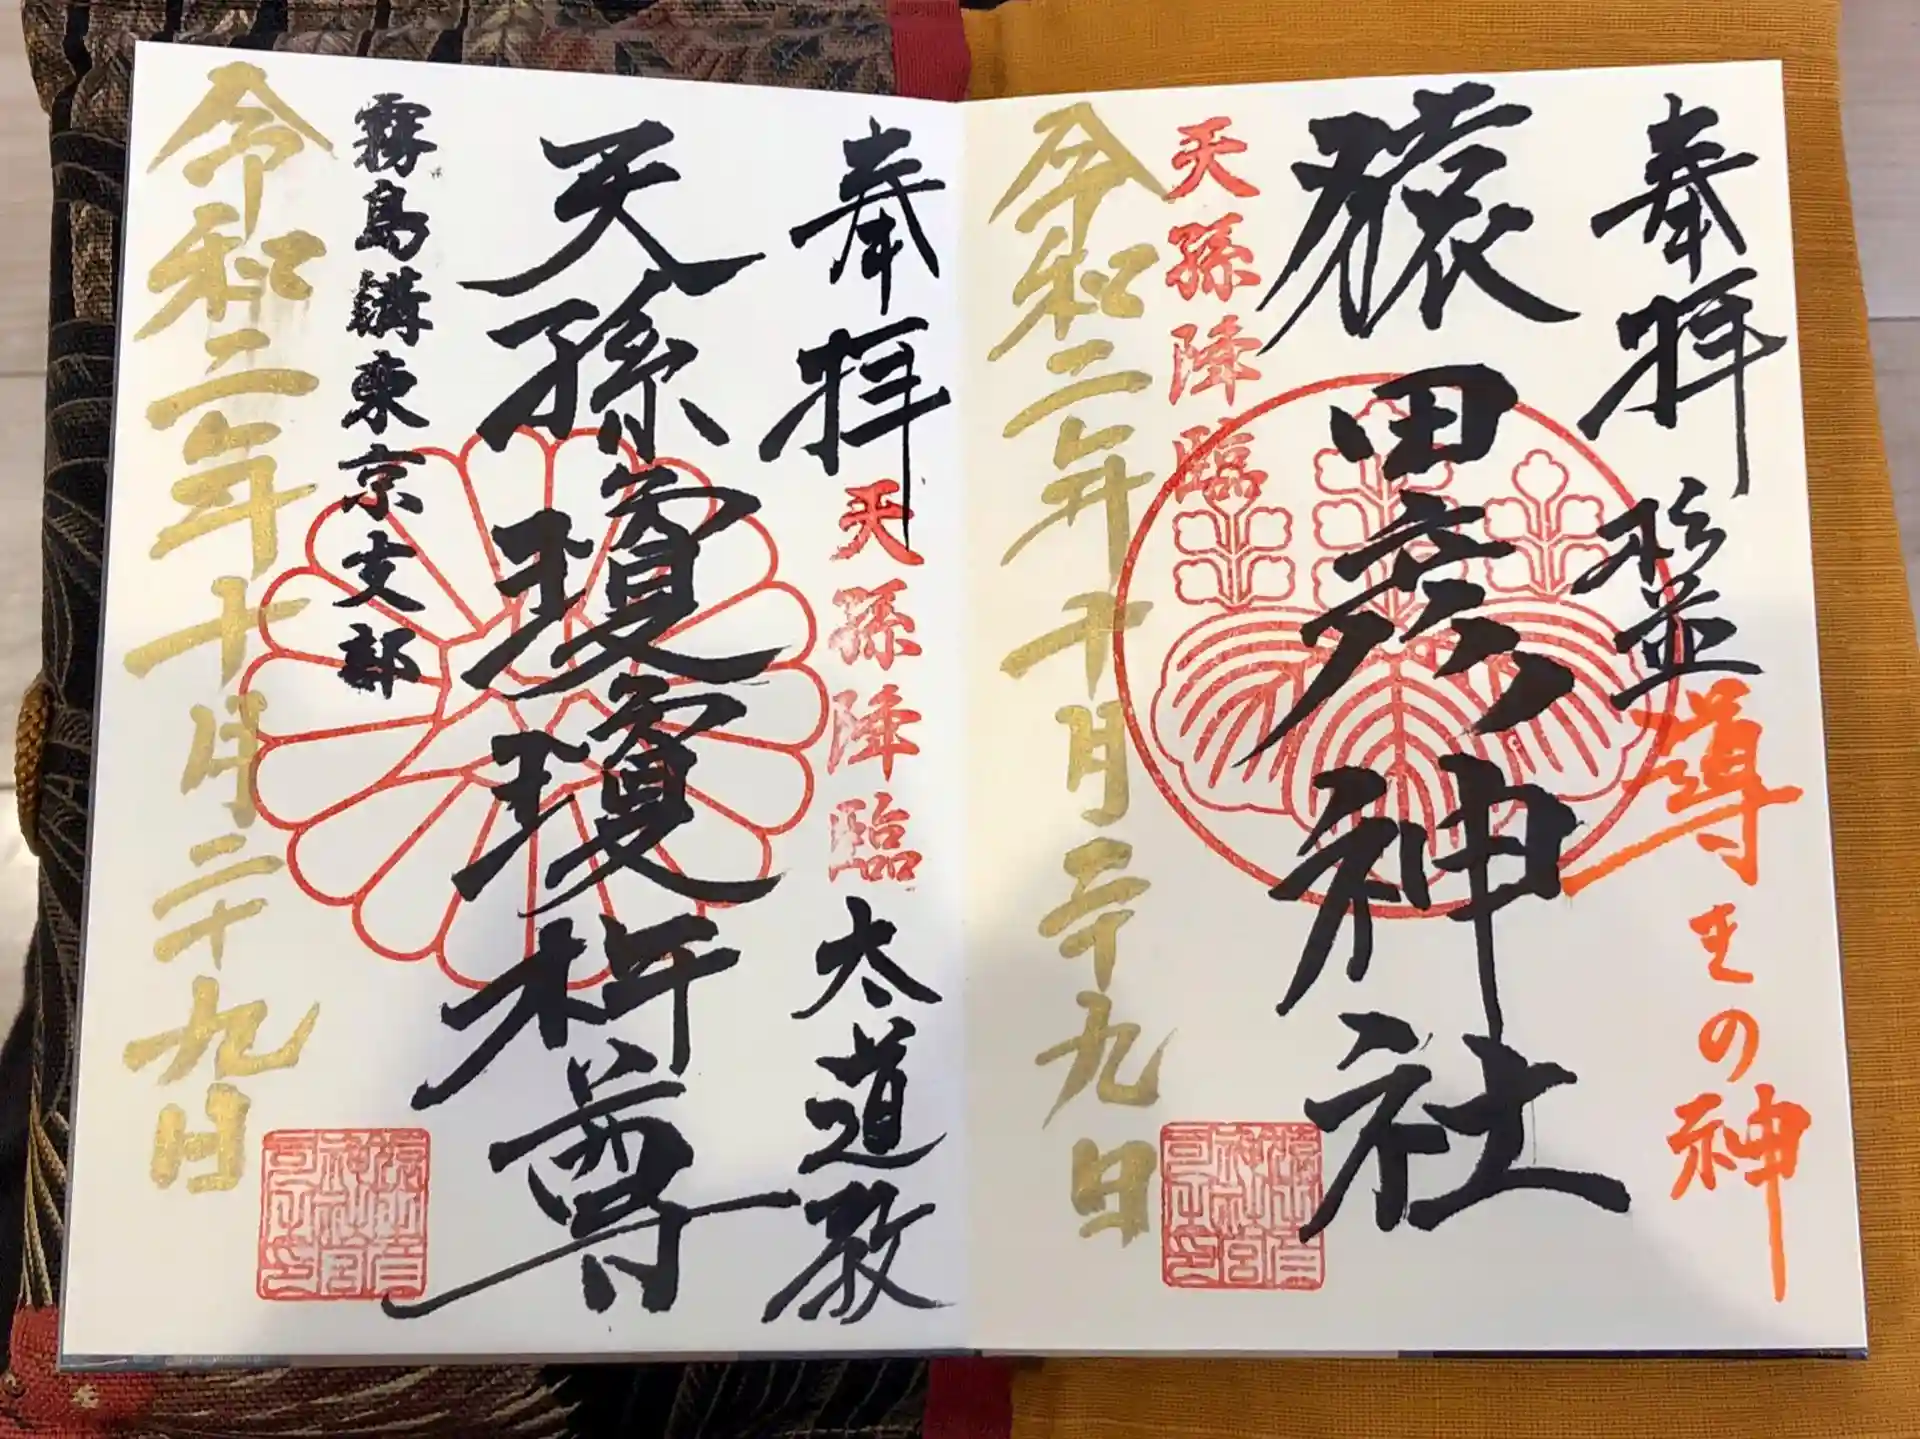 奉拝 杉並 導きの神
猿田彦神社
天孫降臨
令和二年十月二十九日
奉拝 天孫降臨 太道教
天孫瓊瓊杵尊
霧島講東京支部
令和二年十月二十九日